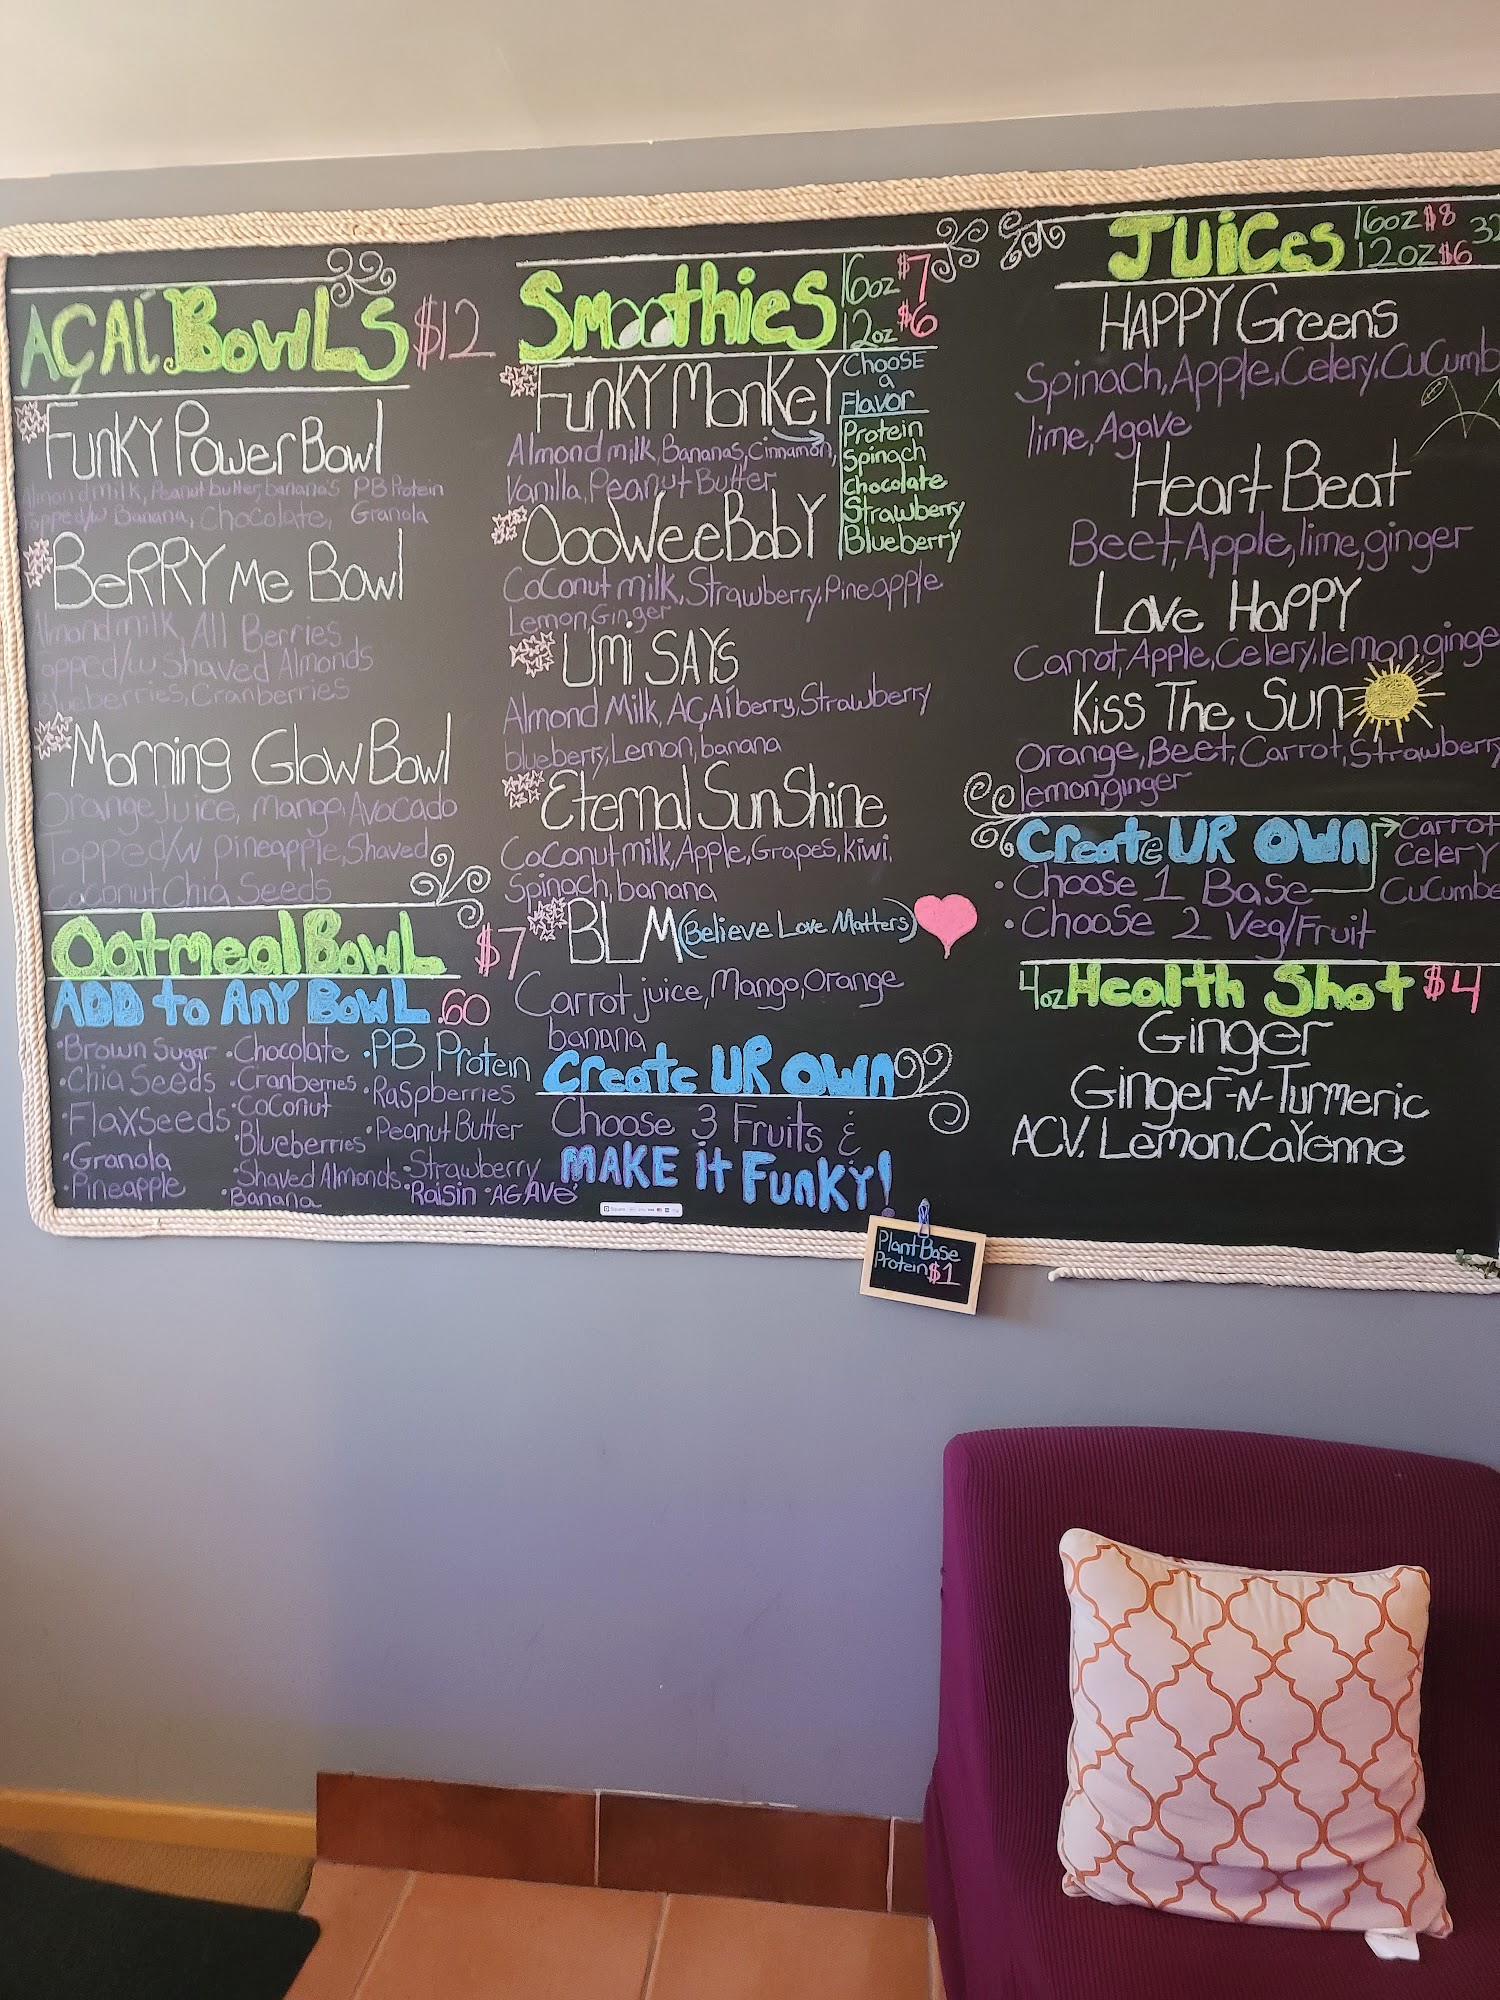 AÇAí BOWLS $12
FUNKY Power Bowl
Almond milk, Peanut butter, banana's PB Protein
Topped/w Banana, Chocolate, Granola
BeRRY Me Bowl
Almond milk, All Berries
Topped/w Shaved Almonds
Blueberries, Cranberries
Morning Glow Bowl
Orange Juice, Mango, Avocado
Topped/w pineapple, Shaved
Coconut Chia Seeds
Oatmeal Bowl $7
ADD to ANY BOWL .60
• Brown Sugar • Chocolate • PB Protein
• Chia Seeds • Cranberries • Raspberries
• FlaxSeeds • CoConut • Peanut Butter
• Granola • Blueberries • Strawberry
• Pineapple • Shaved Almonds • Raisin • AGAVe
• Banana
Smoothies 16oz $7
12oz $6
FUNKY MonKeY
Almond milk, Bananas, Cinnamon,
Vanilla, Peanut Butter
Choose
a
Flavor
Protein
Spinach
Chocolate
Strawberry
Blueberry
OooWeeBabY
CoConut milk, Strawberry, Pineapple
Lemon Ginger
UMi SAYs
Almond Milk, AÇAí berry, Strawberry
blueberry, Lemon, banana
Eternal SunShine
CoConut milk, Apple, Grapes, kiwi,
Spinach, banana
BLM (Believe Love Matters)
Carrot juice, Mango, Orange
banana
Create UR OWN
Choose 3 Fruits &
MAKE it FUNKY!
Square
Plant Base
Protein $1
JUICes 16oz $8 32
12oz $6
HAPPY Greens
Spinach, Apple, Celery, CuCumb
lime, Agave
Heart Beat
Beet, Apple, lime, ginger
Love HaPPY
Carrot, Apple, Celery, lemon, ginge
Kiss The Sun
Orange, Beet, Carrot, Strawberry
lemon, ginger
Create UR OWN
• Choose 1 Base
• Choose 2 Veg/Fruit
Carrot
CelerY
CuCumbe
4oz Health Shot $4
Ginger
Ginger-N-Turmeric
ACV, Lemon, CaYenne